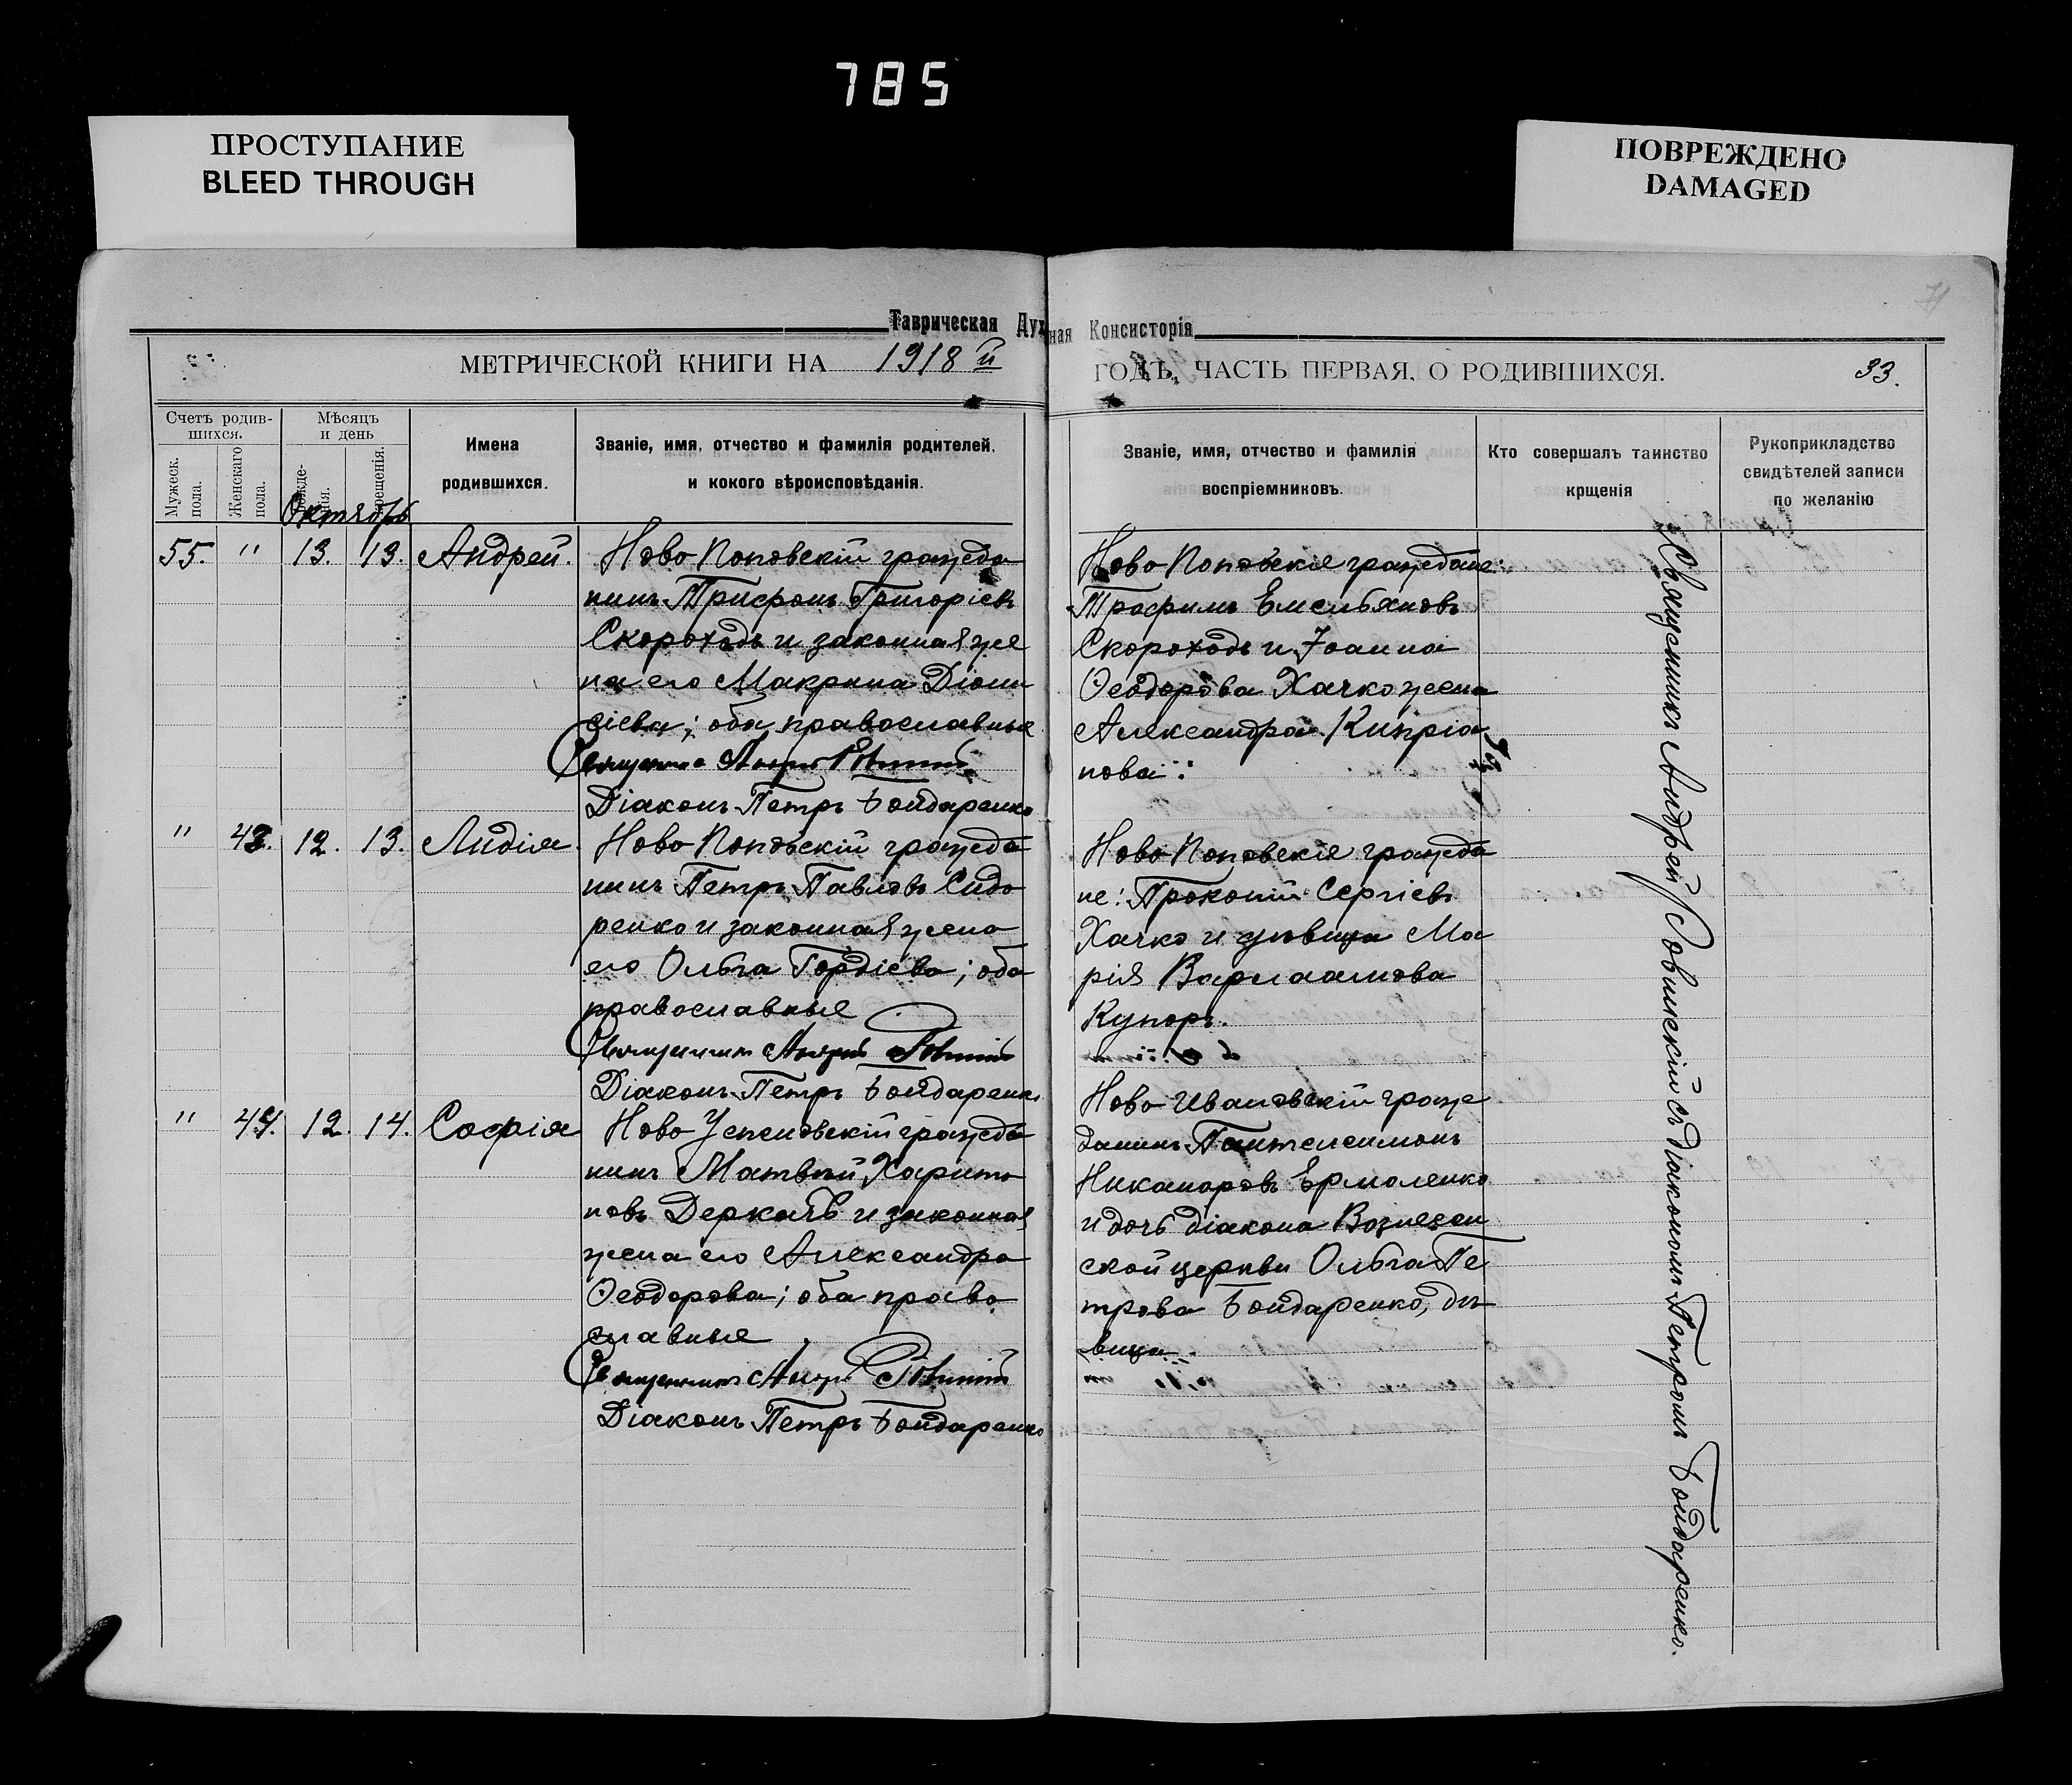 785
ПРОСТУПАНИЕ
BLEED THROUGH
ПОВРЕЖДЕНО
DAMAGED
Таврическая Духовная Консисторія
МЕТРИЧЕСКОЙ КНИГИ НА 1918 й
ГОДЪ, ЧАСТЬ ПЕРВАЯ, О РОДИВШИХСЯ.
33.
Счетъ родив-
шихся.
Мужеск.
пола.
Женскаго
пола.
Мѣсяцъ
и день
Рожде-
нія.
Крещенія.
Имена
родившихся.
Званіе, имя, отчество и фамилія родителей,
и кокого вѣроисповѣданія.
Званіе, имя, отчество и фамилія
воспріемниковъ.
Кто совершалъ таинство
крщенія
Рукоприкладство
свидѣтелей записи
по желанію
Октябрь
55. " 13. 13. Андрей.
Ново Поповскій гражда
нинъ Трифонъ Григоріевъ
Скороходъ и законная же
на его Макрина Діони
сіева; оба православные
Священникъ Андрей
Діаконъ Петръ Бондаренко
Ново Поповскіе граждане:
Трофимъ Емельяновъ
Скороходъ и Іоанна
Ѳеодорова Хачко жена
Александра Кипріа
нова
" 43. 12. 13. Лидія
Ново Поповскій гражда
нинъ Петръ Павловъ Сидо
ренко и законная жена
его Ольга Гордіева; оба
православные
Священникъ Андрей
Діаконъ Петръ Бондаренко
Ново Поповскіе гражда
не: Прокопій Сергіевъ
Хачко и дѣвица Ма
рія Варлаамова
Купоръ.
" 44. 12. 14. Софія
Ново Успеновскій гражда
нинъ Матвѣй Харито
новъ Деркачъ и законная
жена его Александра
Ѳеодорова; оба право
славные
Священникъ Андрей
Діаконъ Петръ Бондаренко
Ново Ивановскій граж
данинъ Пантелеимонъ
Никаноровъ Ермоленко
и дочь діакона Вознесен
ской церкви Ольга Пе
трова Бондаренко, дѣ
вица
Священникъ Андрей съ Діакономъ Петромъ Бондаренко.